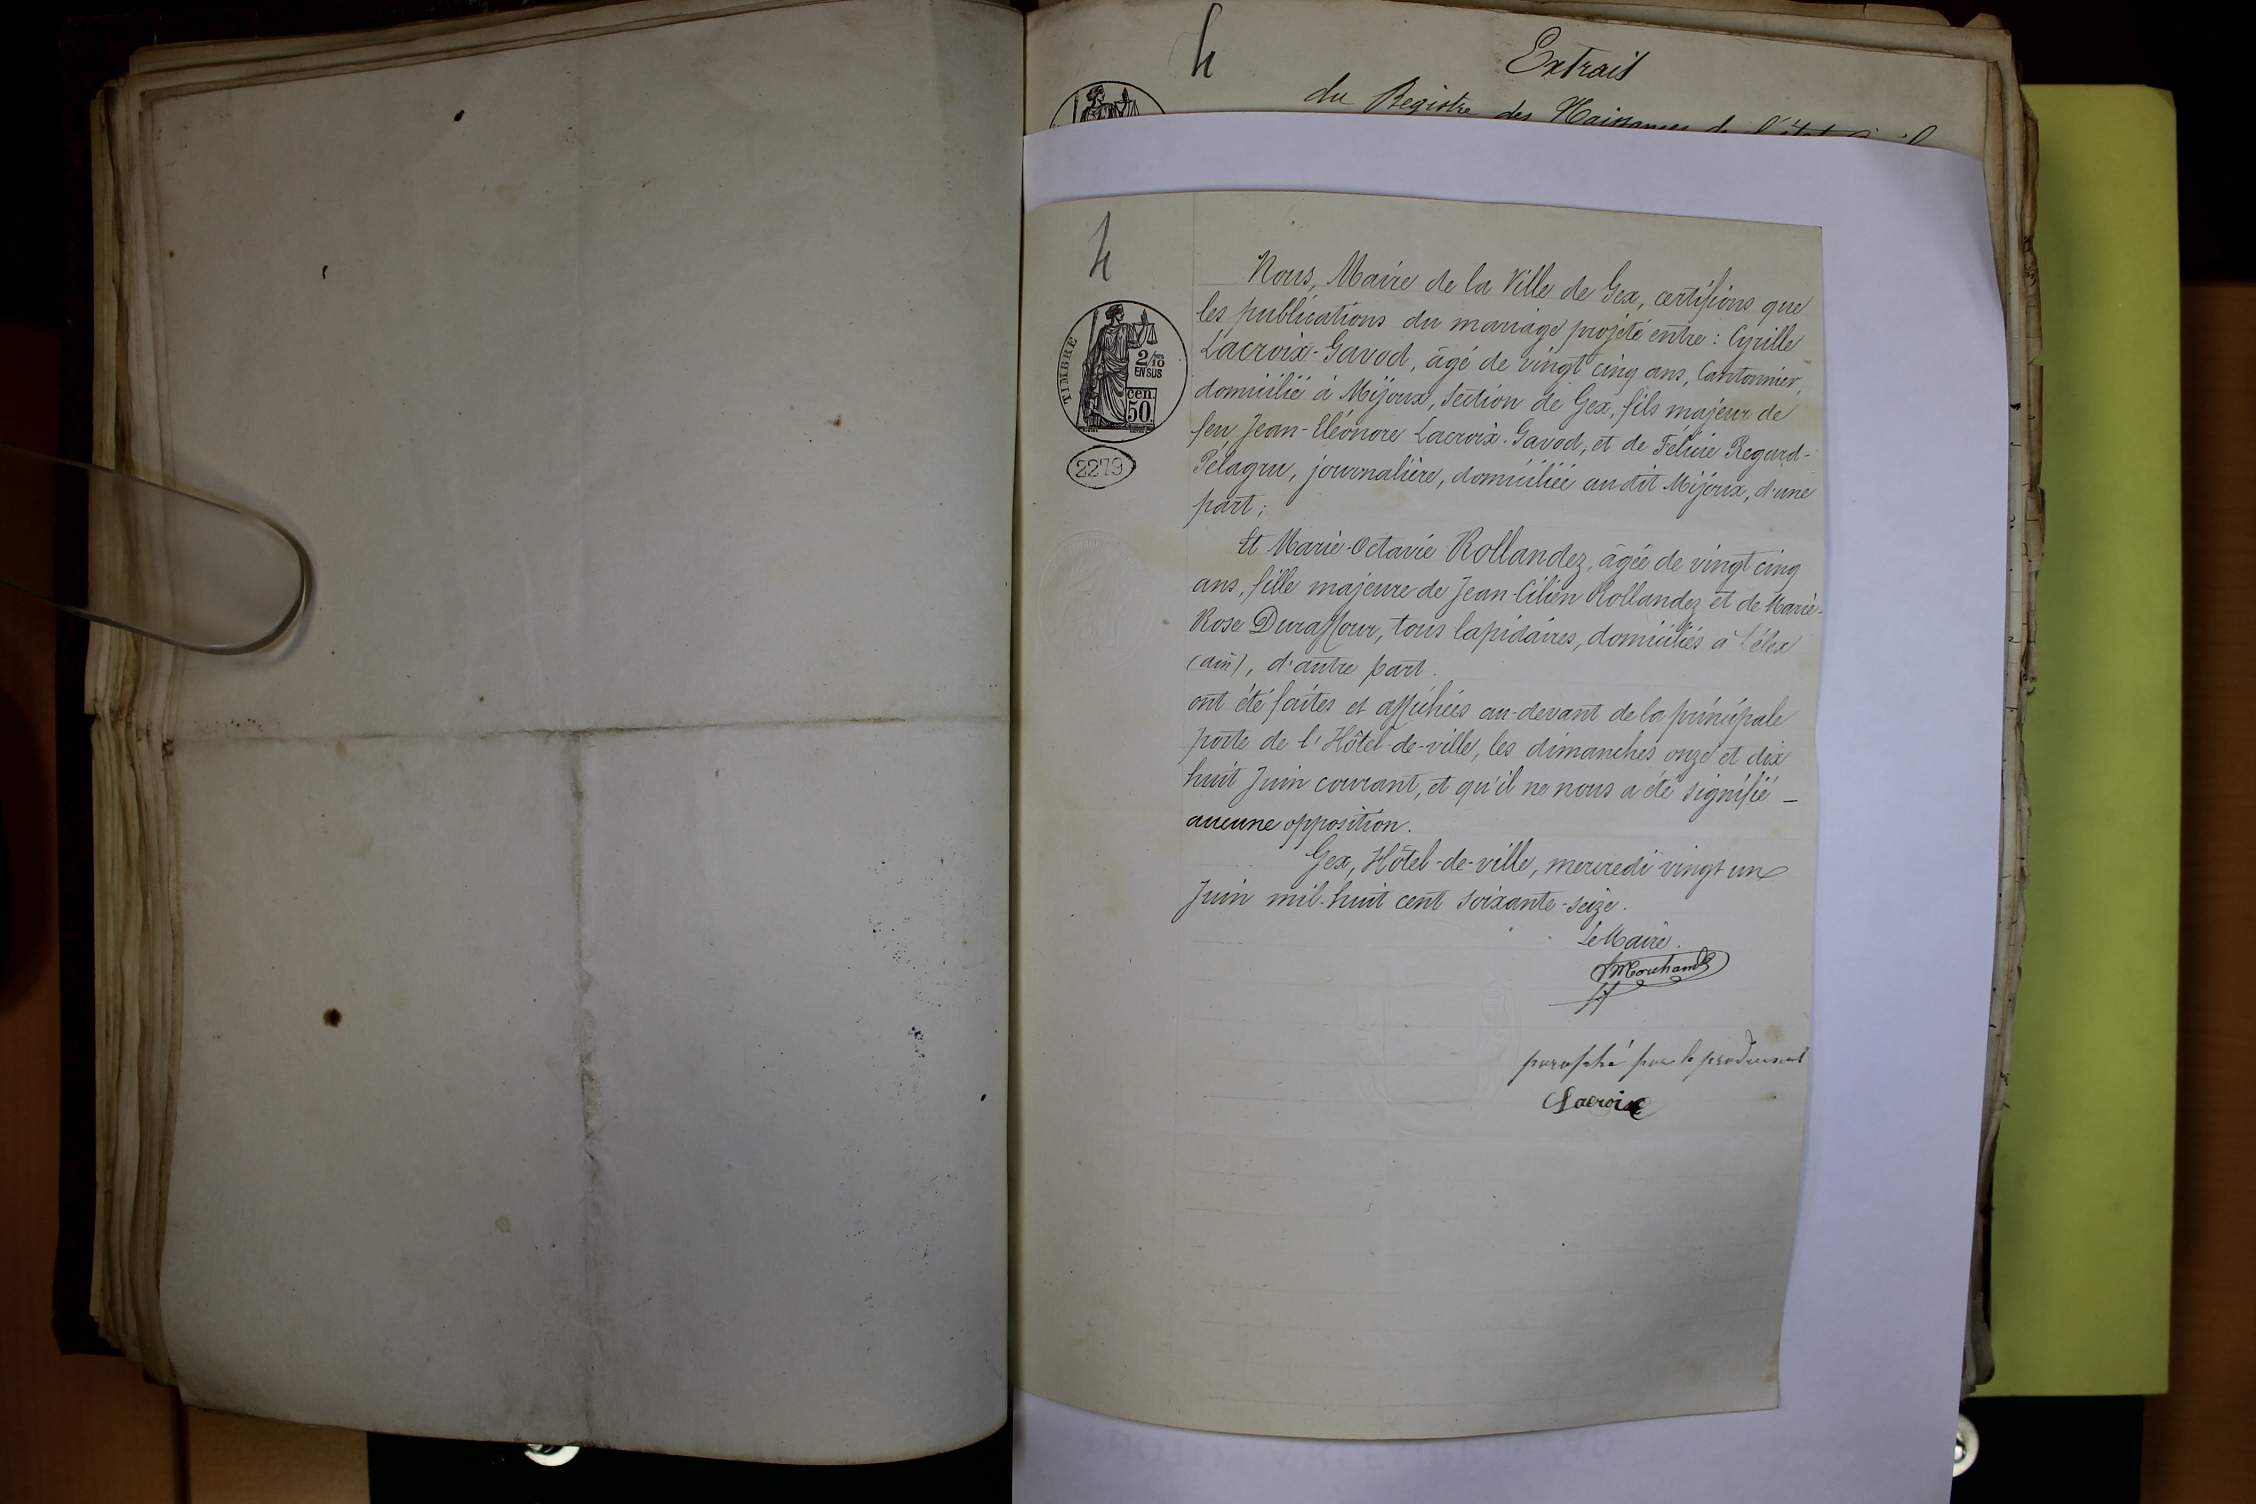 4
Extrait
du Registre des Naissances de l'état
4
TIMBRE
2/10
EN SUS
cen.
50
2279
Nous, Maire de la Ville de Gex, certifions que
les publications du mariage projeté entre : Cyrille
Lacroix-Gavod, âgé de vingt cinq ans, Cantonnier,
domicilié à Mijoux, section de Gex, fils majeur de
feu Jean-Eléonore Lacroix-Gavod, et de Félicie Regard-
Pelagru, journalière, domiciliée au dit Mijoux, d'une
part ;
Et Marie-Octavie Rollandez, âgée de vingt cinq
ans, fille majeure de Jean-Cilien Rollandez et de Marie-
Rose Duraffour, tous lapidaires, domiciliés à Lélex
(ain), d'autre part.
ont été faites et affichées au-devant de la principale
porte de l'Hôtel-de-ville, les dimanches onze et dix
huit Juin courant, et qu'il ne nous a été signifié -
aucune opposition.
Gex, Hôtel-de-ville, mercredi vingt un
Juin mil-huit cent soixante-seize.
Le Maire.
paraphé par le
Lacroix